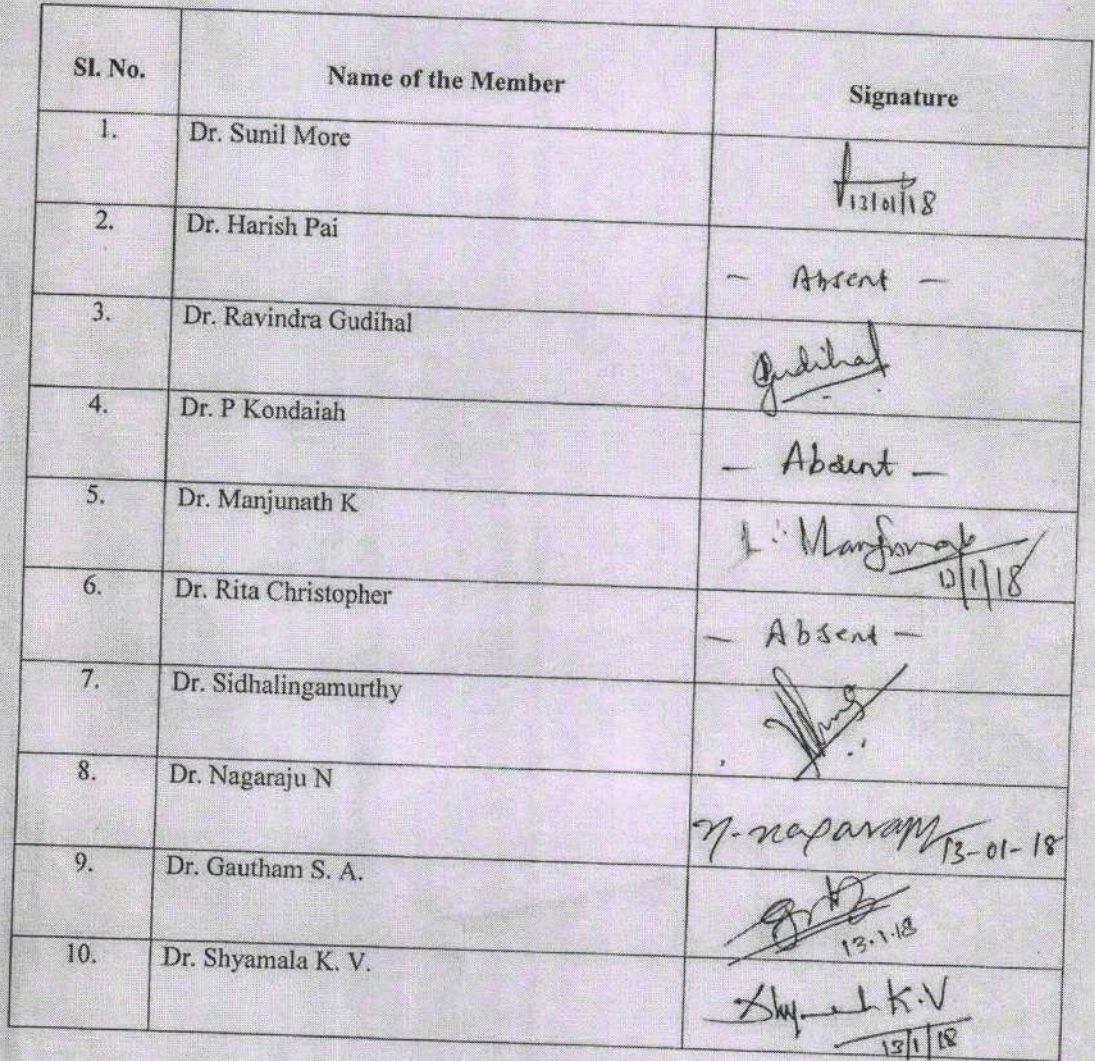 Sl. No. Name of the Member Signature
1. Dr. Sunil More
13/01/18
2. Dr. Harish Pai
- Absent -
3. Dr. Ravindra Gudihal
Gudihal
4. Dr. P Kondaiah
- Absent -
5. Dr. Manjunath K
13/1/18
6. Dr. Rita Christopher
- Absent -
7. Dr. Sidhalingamurthy
8. Dr. Nagaraju N
N. Nagaraju 13-01-18
9. Dr. Gautham S. A.
13.1.18
10. Dr. Shyamala K. V.
K.V
13/1/18